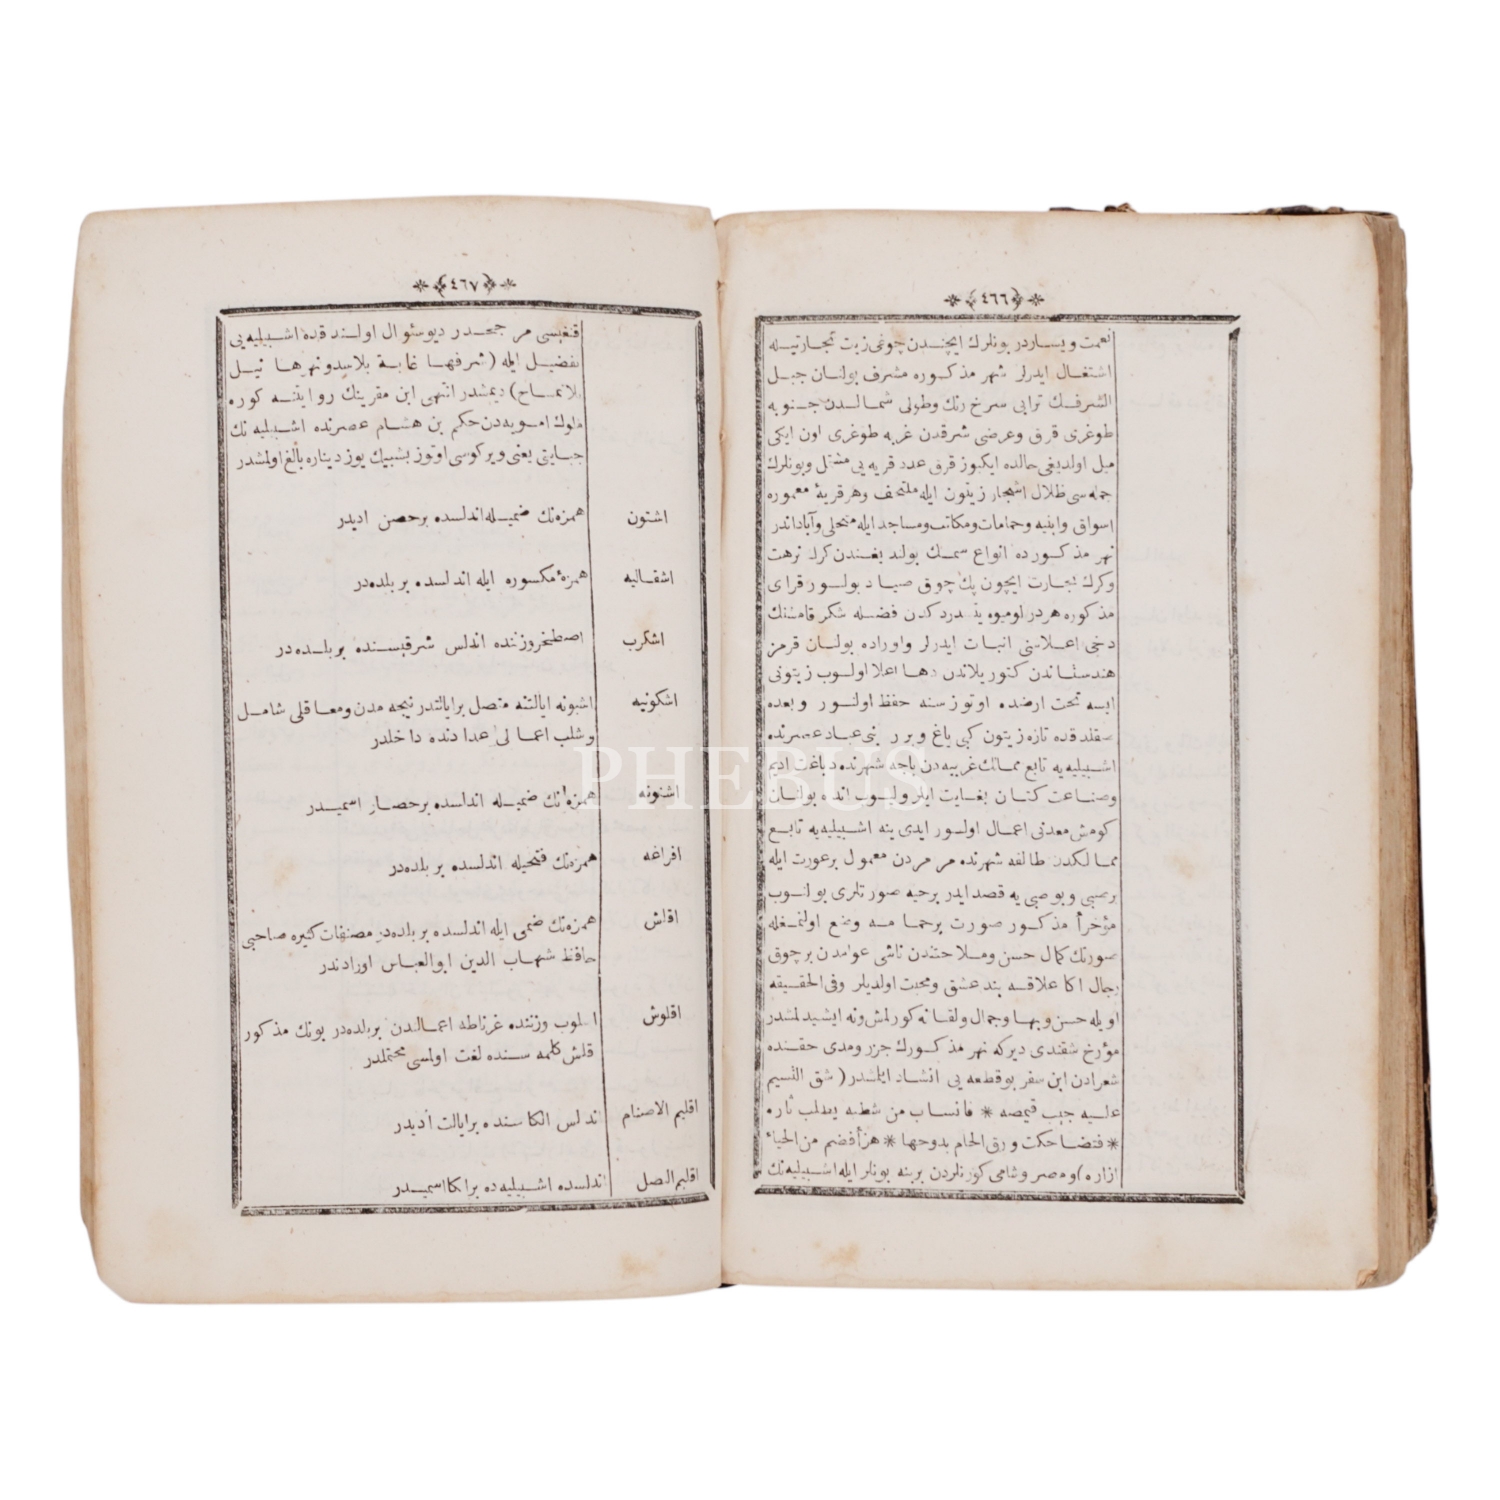 ٤٦٦
نعمت ويساردر بونلرك ايچندن چوغى زيت تجارتيله
اشتغال ايدرلر شهر مذكوره مشرف بولنان جبل
الشرفك ترابى سرخ رنك وطولى شمالدن جنوبه
طوغرى قرق وعرضى شرقدن غربه طوغرى اون ايكى
ميل اولديغى حالده ايكيوز قرق عدد قريه يى مشتمل وبونلرك
جمله سى ظلال اشجار زيتون ايله ملتحف وهر قريهٔ معموره
اسواق وابنيه وحمامات ومكاتب ومساجد ايله متحلى وآباداندر
نهر مذكورده انواع سمك بولند يغندن كرك نزهت
وكرك تجارت ايچون پك چوق صياد بولور قراى
مذكوره هر درلو ميوه يتشدردكدن فضله شكر قامشنك
دخى اعلاسنى انبات ايدرلر واوراده بولنان قرمز
هندستاندن كتوريلاندن دها اعلا اولوب زيتونى
ايسه تحت ارضده اوتوز سنه حفظ اولنور وبعده
صقلدقده تازه زيتون كبى ياغ ويرر بنى عباد عصرنده
اشبيليه يه تابع ممالك غربيه دن باجه شهرنده دباغت اديم
وصناعت كتان بغايت ايلرولوب انده بولنان
كومش معدنى اعمال اولنور ايدى ينه اشبيليه يه تابع
ممالكدن طالقه شهرنده مرمردن معمول بر عورت ايله
بر صبى وبو صبى يه قصد ايدر بر حيه صورتلرى بولنوب
مؤخراً مذكور صورت بر حمامه وضع اولنمغله
صورتك كمال حسن وملاحتندن ناشى عوامدن بر چوق
رجال اكا علاقه بند عشق ومحبت اولديلر وفى الحقيقه
اويله حسن وبها وجمال ولقا نه كورلمش ونه ايشيدلمشدر
مؤرخ شقندى ديركه نهر مذكورك جزر ومدى حقنده
شعرادن ابن سفر بو قطعه يى انشاد ايلمشدر (شق النسيم
عليه جيب قميصه * فانساب من شطيه يطلب ثاره
* فتضاحكت ورق الحمام بدوحها * هزأ فضم من الحياء
ازاره) ومصر وشامى كورنلردن برينه بونلر ايله اشبيليه نك
٤٦٧
قنغيسى مرجحدر ديو سئوال اولندقده اشبيليه يى
تفضيل ايله (شرفها غابة بلا اسد ونهرها نيل
بلا تمساح) ديمشدر انتهى ابن مقرينك روايتنه كوره
ملوك امويه دن حكم بن هشام عصرنده اشبيليه نك
جبايتى يعنى ويركوسى اوتوز بشبيك يوز ديناره بالغ اولمشدر
اشتون
همزه نك ضميله اندلسده بر حصن اديدر
اشقاليه
همزهٔ مكسوره ايله اندلسده بر بلده در
اشكرب
اصطخر وزننده اندلس شرقيسنده بر بلده در
اشكونيه
اشبونه ايالتنه متصل بر ايالتدر نيجه مدن ومعاقلى شامل
وشلب اعمالى عدادنده داخلدر
اشنونه
همزه نك ضميله اندلسده بر حصار اسميدر
افراغه
همزه نك فتحيله اندلسده بر بلده در
اقلش
همزه نك ضمى ايله اندلسده بر بلده در مصنفات كثيره صاحبى
حافظ شهاب الدين ابو العباس اورادندر
اقلوش
اسلوب وزننده غرناطه اعمالندن بر بلده در بونك مذكور
قلش كلمه سنده لغت اولسى محتملدر
اقليم الاصنام
اندلس الكاسنده بر ايالت اديدر
اقليم البصل
اندلسده اشبيليه ده بر الكا اسميدر